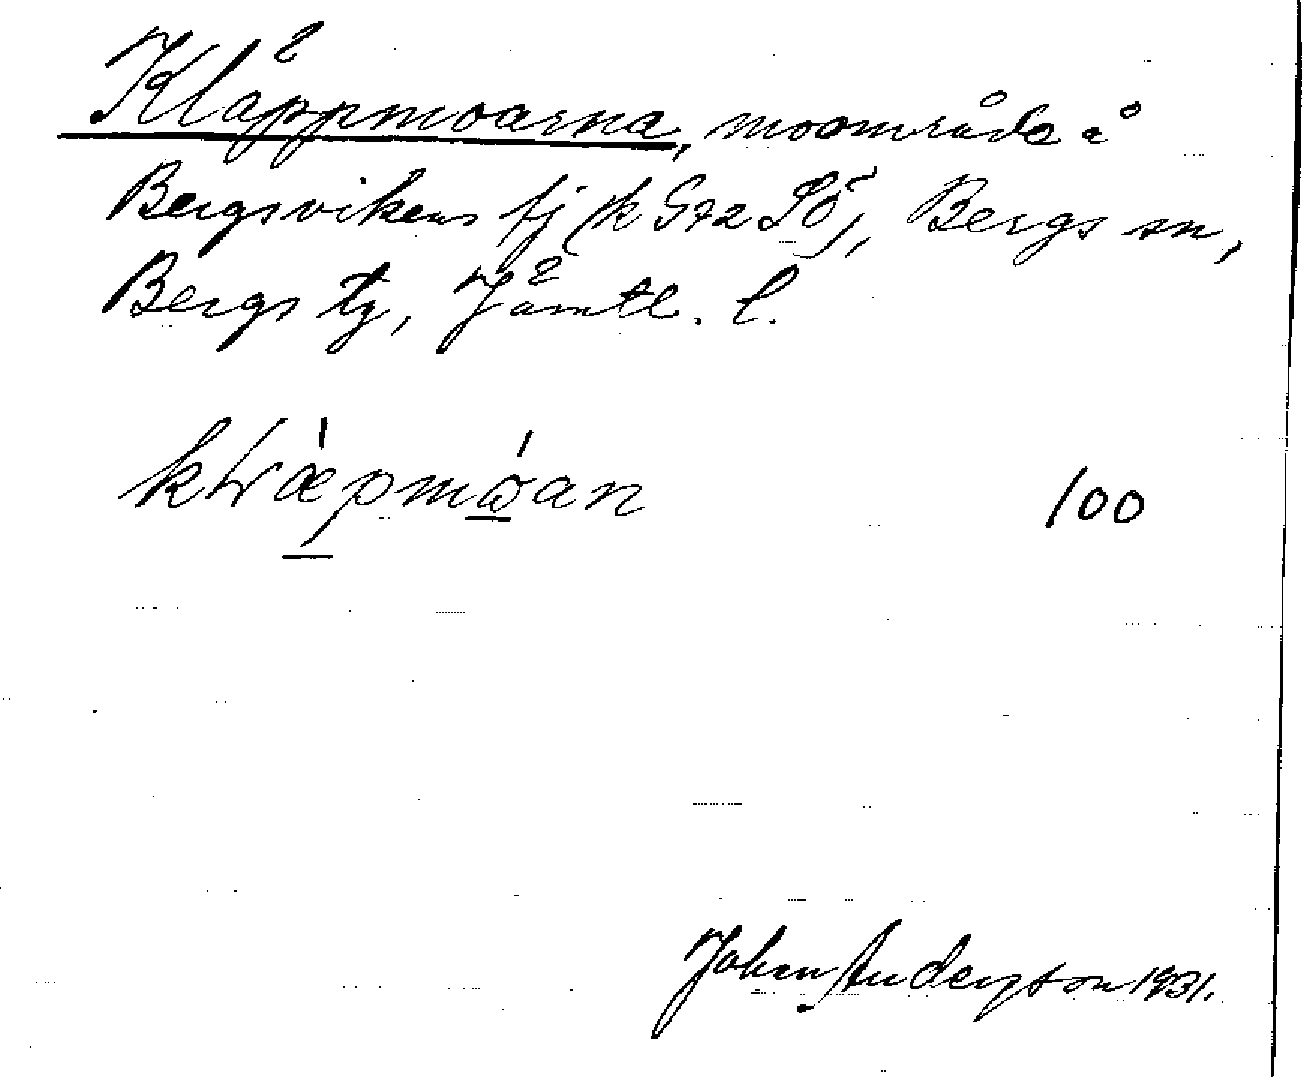 Kläppmoarna, moområde å
Bergsvikens fj (k G72 SÖ), Bergs sn,
Bergs tg, Jämtl. l.
100
Johan Anderson 1931.